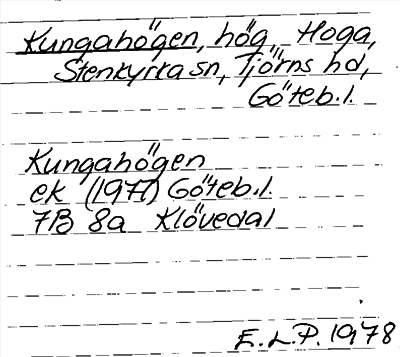 Kungahögen, hög, Höga,
Stenkyrka sn, Tjörns hd,
Göteb. l.
Kungahögen
ek (1977) Göteb. l.
7B 8a Klövedal
E. L. P. 1978